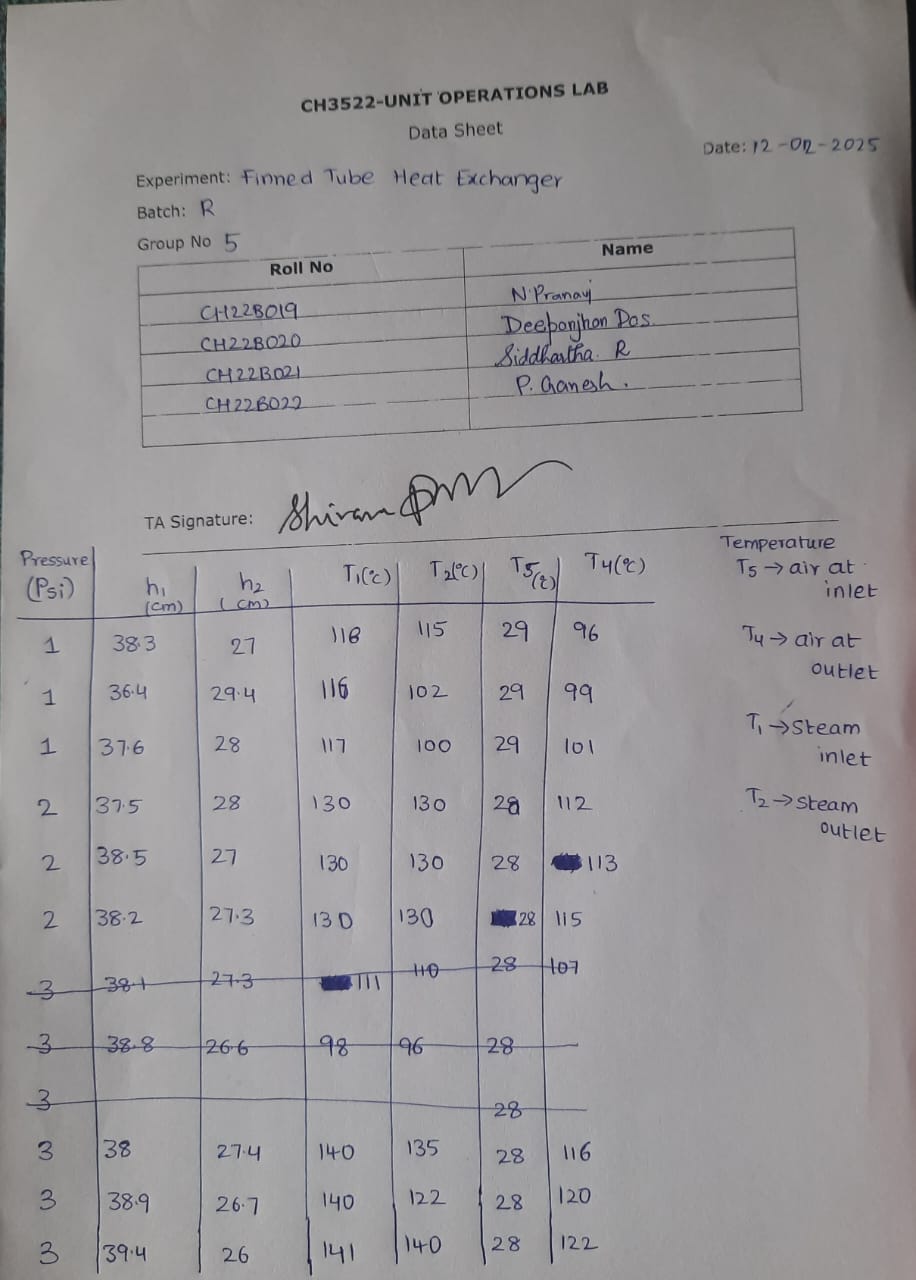 CH3522-UNIT OPERATIONS LAB
Data Sheet
Date: 12-02-2025
Experiment: Finned Tube Heat Exchanger
Batch: R
Group No 5
Roll No Name
CH22B019 N.Pranavi
CH22B020 Deepanjhan Das.
CH22B021 Siddhartha. R
CH22B022 P. Ganesh.
TA Signature:
Pressure (Psi) h₁ (cm) h₂ (cm) T₁(°C) T₂(°C) T5(°C) T4(°C)
1 38.3 27 118 115 29 96
1 36.4 29.4 116 102 29 99
1 37.6 28 117 100 29 101
2 37.5 28 130 130 28 112
2 38.5 27 130 130 28 113
2 38.2 27.3 130 130 28 115
3 38.1 27.3 111 110 28 107
3 38.8 26.6 98 96 28 —
3 28
3 38 27.4 140 135 28 116
3 38.9 26.7 140 122 28 120
3 39.4 26 141 140 28 122
Temperature
T5 → air at
inlet
T4 → air at
outlet
T₁ → Steam
inlet
T₂ → steam
outlet